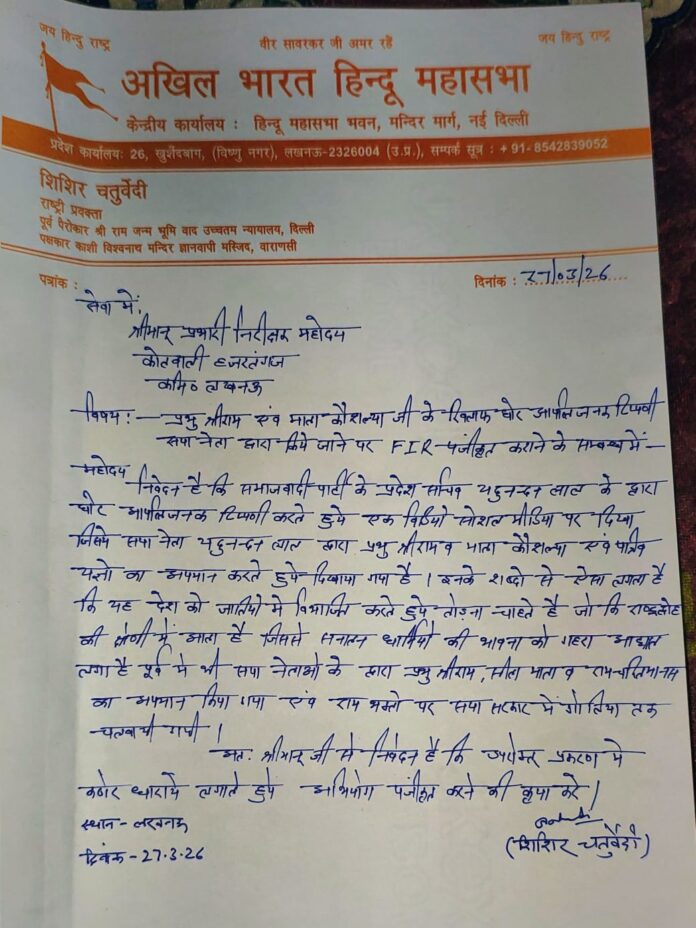 जय हिन्दु राष्ट्र
वीर सावरकर जी अमर रहें
जय हिन्दु राष्ट्र
अखिल भारत हिन्दू महासभा
केन्द्रीय कार्यालय : हिन्दू महासभा भवन, मन्दिर मार्ग, नई दिल्ली
प्रदेश कार्यालय: 26, खुर्शेदबाग, (विष्णु नगर), लखनऊ-2326004 (उ.प्र.), सम्पर्क सूत्र : + 91- 8542839052
शिशिर चतुर्वेदी
राष्ट्री प्रवक्ता
पूर्व पैरोकार श्री राम जन्म भूमि वाद उच्चतम न्यायालय, दिल्ली
पक्षकार काशी विश्वनाथ मन्दिर ज्ञानवापी मस्जिद, वाराणसी
पत्रांक :
दिनांक : 27/03/26
सेवा में,
श्रीमान् प्रभारी निरीक्षक महोदय
कोतवाली हजरतगंज
कमि० लखनऊ
विषय :- प्रभु श्रीराम एंव माता कौशल्या जी के खिलाफ घोर आपत्तिजनक टिप्पणी
सपा नेता द्वारा किये जाने पर FIR पंजीकृत कराने के सम्बन्ध में -
महोदय
निवेदन है कि समाजवादी पार्टी के प्रदेश सचिव यदुनन्दन लाल के द्वारा
घोर आपत्तिजनक टिप्पणी करते हुये एक विडियो सोशल मीडिया पर दिखा
जिसमे सपा नेता यदुनन्दन लाल द्वारा प्रभु श्रीराम व माता कौशल्या एंव पवित्र
यज्ञो का अपमान करते हुये दिखाया गया है । इनके शब्दो से ऐसा लगता है
कि यह देश को जातियो मे विभाजित करते हुये तोड़ना चाहते है जो कि राष्ट्रद्रोह
की श्रेणी में आता है जिससे सनातन धर्मियो की भावना को गहरा आघात
लगा है पूर्व मे भी सपा नेताओ के द्वारा प्रभु श्रीराम, सीता माता व रामचरितमानस
का अपमान किया गया एंव राम भक्तो पर सपा सरकार में गोलिया तक
चलवायी गयी ।
अत: श्रीमान् जी से निवेदन है कि उपरोक्त प्रकरण मे
कठोर धाराये लगाते हुये अभियोग पंजीकृत करने की कृपा करे ।
स्थान - लखनऊ
दिनांक - 27.3.26
(शिशिर चतुर्वेदी)